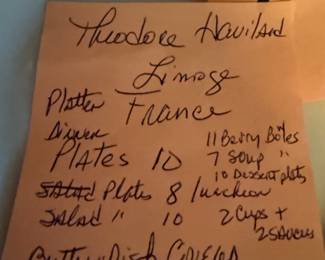 Theodore Haviland
Limoge
France
Platter
Dinner
Plates 10
Salad Plates 8 luncheon
Salad " 10
11 Berry Bowls
7 Soup "
10 Dessert plates
2 Cups +
2 Saucers
Butter Dish Covered